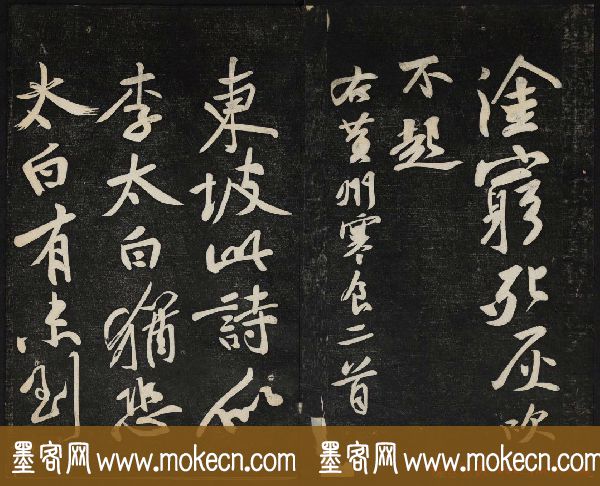 塗窮死灰吹
不起
右黃州寒食二首
東坡此詩似
李太白猶恐
太白有未到
墨客网 www.mokecn.com 墨客网 www.mokecn.com